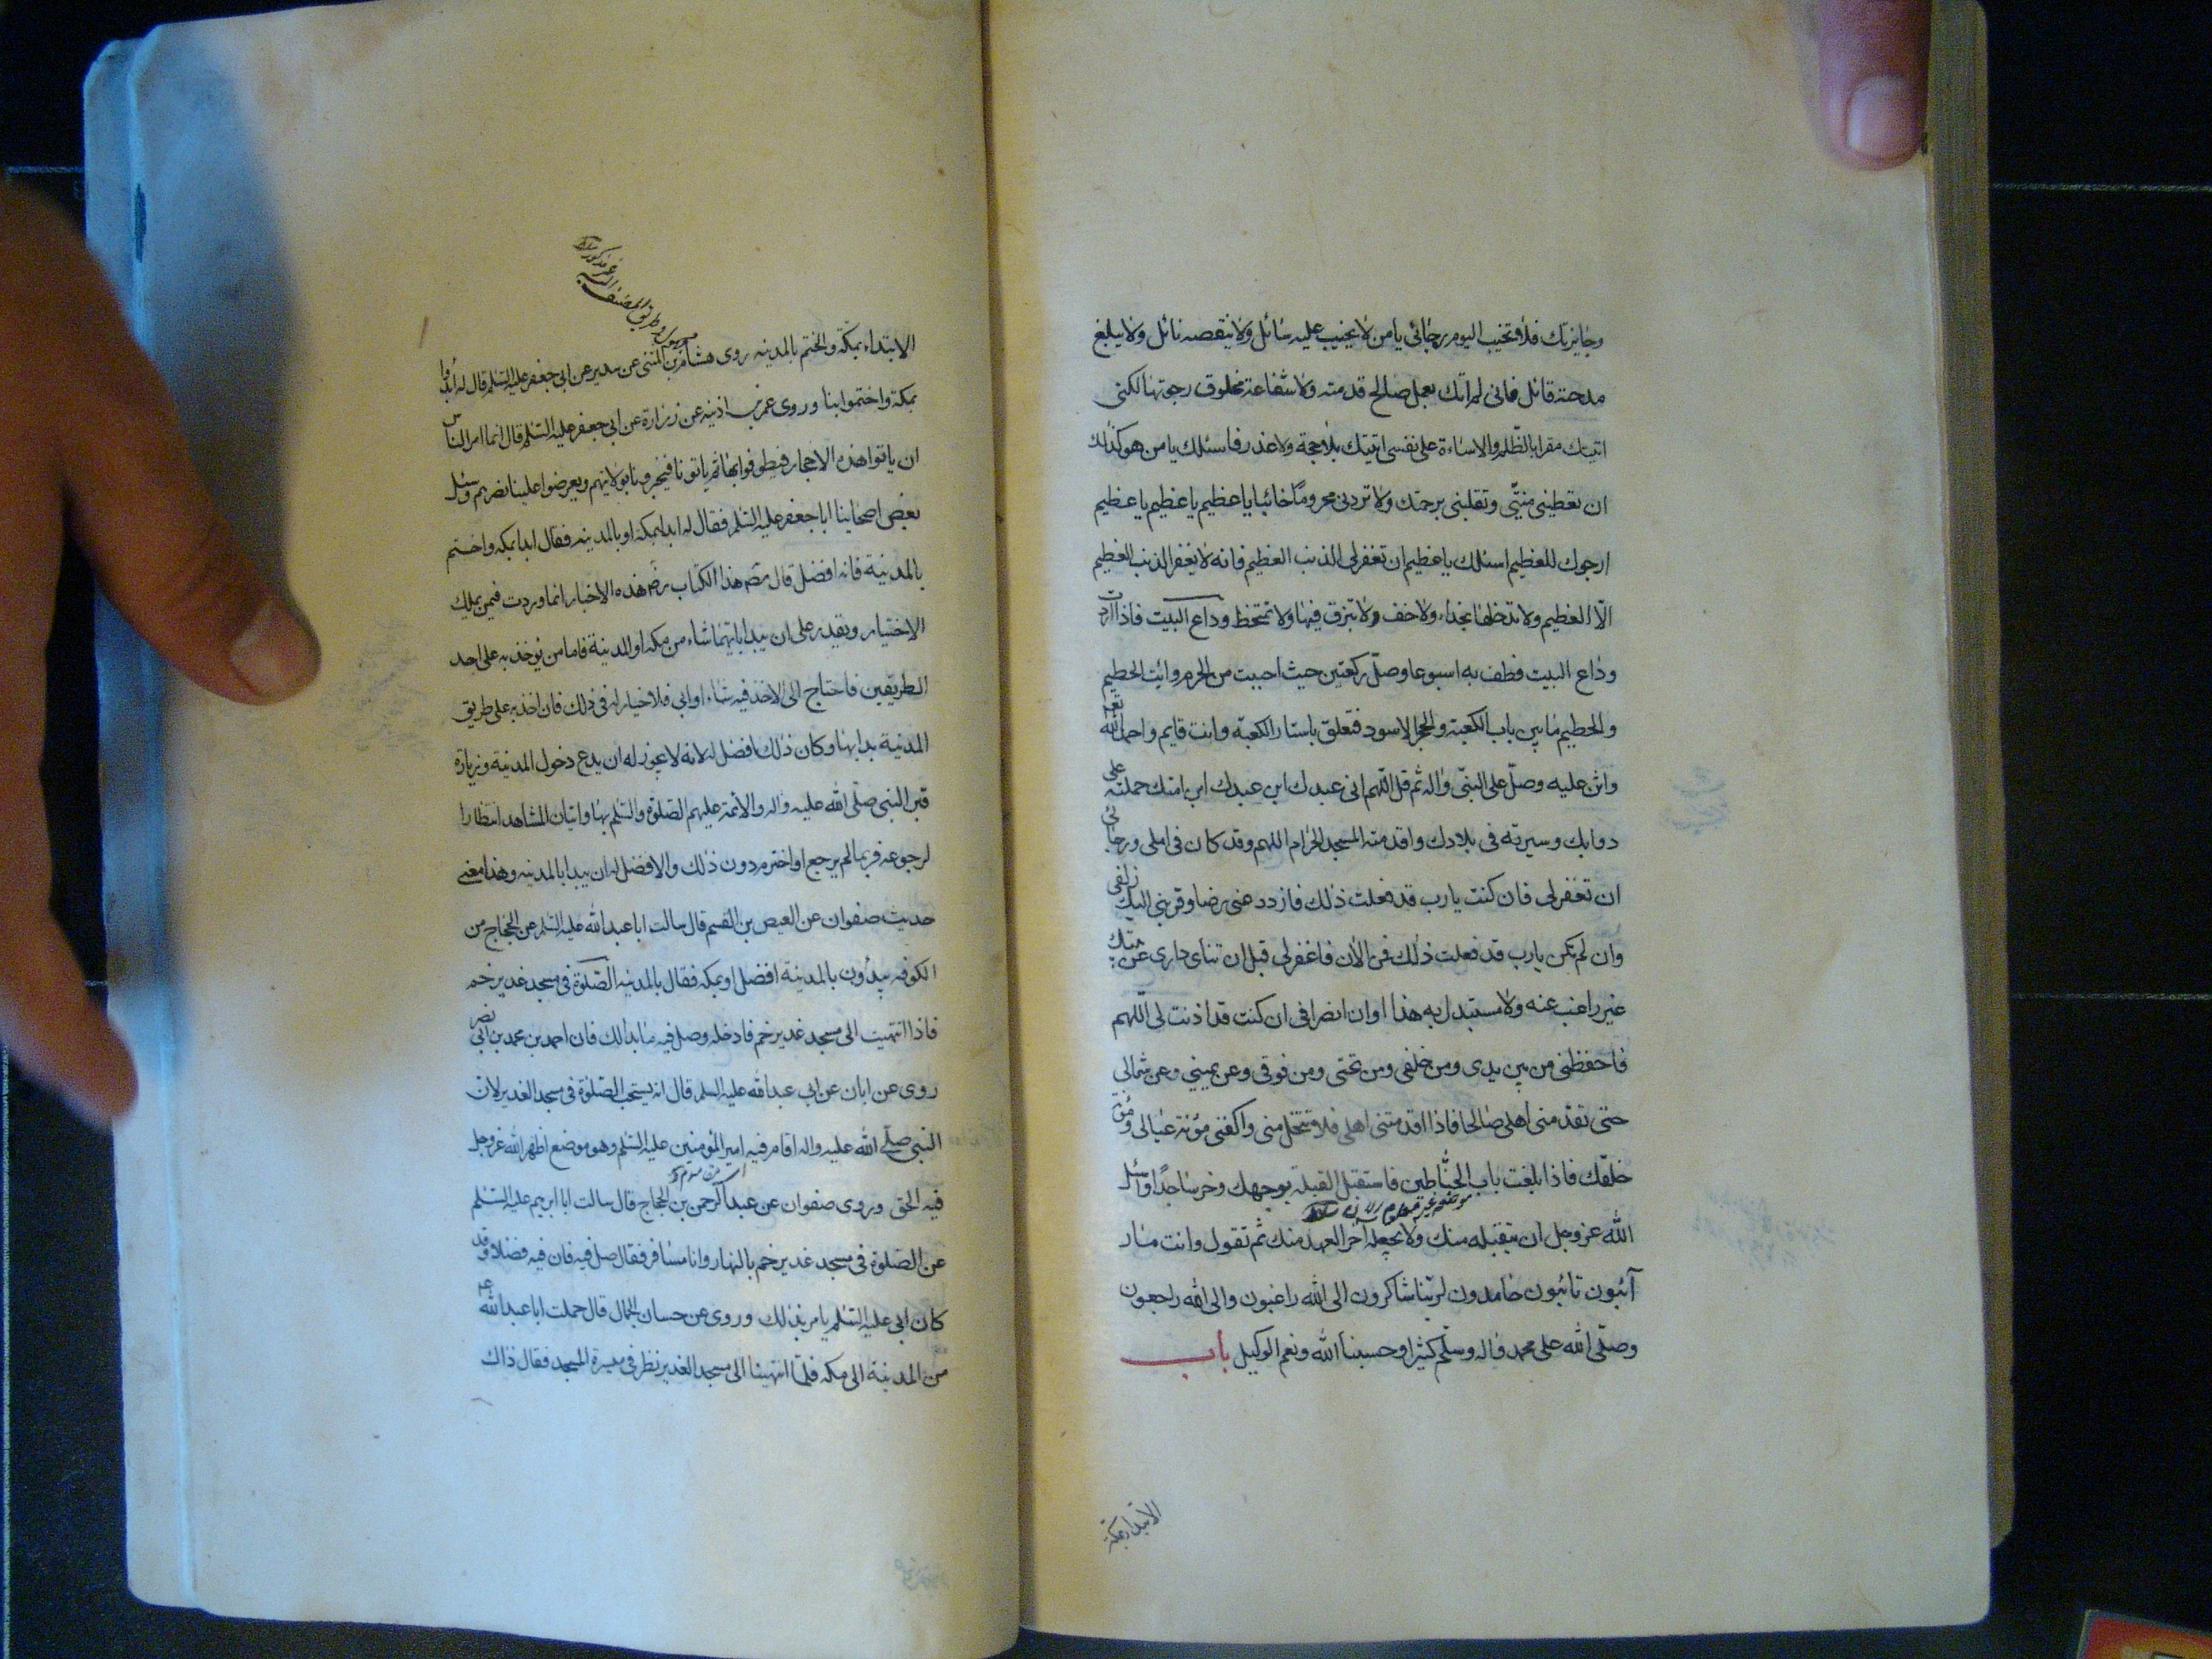 وجايزتك فلا تخيب اليوم رجائي يا من لا يخيب عليه سائل ولا ينقصه نائل ولا يبلغ
مدحته قائل فاني لم اتك بعمل صالح قدمته ولا شفاعة مخلوق رجوتها لكني
اتيتك مقرا بالظلم والاساءة على نفسي اتيتك بلا حجة ولا عذر فاسئلك يا من هو كذلك
ان تعطيني منيتي وتقلبني برحمتك ولا تردني محروما خائبا يا عظيم يا عظيم يا عظيم
ارجوك للعظيم اسئلك يا عظيم ان تغفر لي الذنب العظيم فانه لا يغفر الذنب العظيم
الا العظيم ولا تدخلها بحذاء ولا خف ولا تبزق فيها ولا تمتخط وداع البيت فاذا اردت
وداع البيت فطف به اسبوعا وصل ركعتين حيث احببت من الحرم وائت الحطيم
والحطيم ما بين باب الكعبة والحجر الاسود فتعلق باستار الكعبة وانت قايم واحمد الله تعه
واثن عليه وصل على النبي واله ثم قل اللهم اني عبدك ابن عبدك ابن امتك حملته على
دوابك وسيرته في بلادك واقدمته المسجد الحرام اللهم وقد كان في املي ورجائي
ان تغفر لي فان كنت يا رب قد فعلت ذلك فازدد عني رضا وقربني اليك زلفى
وان لم تكن يا رب قد فعلت ذلك فمن الان فاغفر لي قبل ان تناى داري عن بيتك
غير راغب عنه ولا مستبدل به هذا اوان انصرافي ان كنت قد اذنت لي اللهم
فاحفظني من بين يدي ومن خلفي ومن تحتي ومن فوقي وعن يميني وعن شمالي
حتى تقدمني اهلي صالحا فاذا اقدمتني اهلي فلا تتخل مني واكفني مؤنة عيالي ومؤنة
خلقك فاذا بلغت باب الحناطين فاستقبل القبلة بوجهك وخر ساجدا واسئل
الله عز وجل ان يتقبله منك ولا يجعله اخر العهد منك ثم تقول وانت مار
آئبون تائبون حامدون لربنا شاكرون الى الله راغبون والى الله راجعون
وصلى الله على محمد واله وسلم كثيرا وحسبنا الله ونعم الوكيل باب
الابتداء بمكة
الابتداء بمكة والختم بالمدينه روى هشام بن المثنى عن سدير عن ابي جعفر عليه السلم قال له ابدؤا
بمكة واختموا بنا وروى عمر بن اذينه عن زرارة عن ابي جعفر عليه السلم قال انما امر الناس
ان ياتوا هذه الاحجار فيطوفوا بها ثم ياتونا فيخبرونا بولايتهم ويعرضوا علينا نصرهم وسئل
بعض اصحابنا ابا جعفر عليه السلم فقال له ابدا بمكة او بالمدينه فقال ابدا بمكه واختم
بالمدينة فانه افضل قال مصه هذا الكتاب رضه هذه الاخبار انما وردت فيمن يملك
الاختيار ويقدر على ان يبدا بايهما شاء من مكه او المدينة فاما من يؤخذ به على احد
الطريقين فاحتاج الى الاخذ فيه شاء او ابي فلا خيار له في ذلك فان اخذ به على طريق
المدنية بدا بها وكان ذلك افضل له لانه لا يجوز له ان يدع دخول المدينة وزيارة
قبر النبي صلى الله عليه واله والائمة عليهم الصلوة والسلم بها واتيان المشاهد انتظارا
لرجوعه فربما لم يرجع او اخترم دون ذلك والافضل له ان يبدا بالمدينه وهذا معنى
حديث صفوان عن العيص بن القسم قال سالت ابا عبد الله عليه السلم عن الحجاج من
الكوفه يبدؤن بالمدينة افضل او بمكه فقال بالمدينه الصلوة في مسجد غدير خم
فاذا انتهيت الى مسجد غدير خم فادخله وصل فيه ما بدا لك فان احمد بن محمد بن ابي نصر
روى عن ابان عن ابي عبد الله عليه السلم قال انه يستحب الصلوة في مسجد الغدير لان
النبي صلى الله عليه واله اقام فيه امير المؤمنين عليه السلم وهو موضع اظهر الله عز وجل
فيه الحق وروى صفوان عن عبد الرحمن بن الحجاج قال سالت ابا ابرهيم عليه السلم
عن الصلوة في مسجد غدير خم بالنهار وانا مسافر فقال صل فيه فان فيه فضلا وقد
كان ابي عليه السلم يامر بذلك وروى عن حسان الجمال قال حملت ابا عبد الله عم
من المدينة الى مكه فلما انتهينا الى مسجد الغدير نظر في ميسرة المسجد فقال ذاك